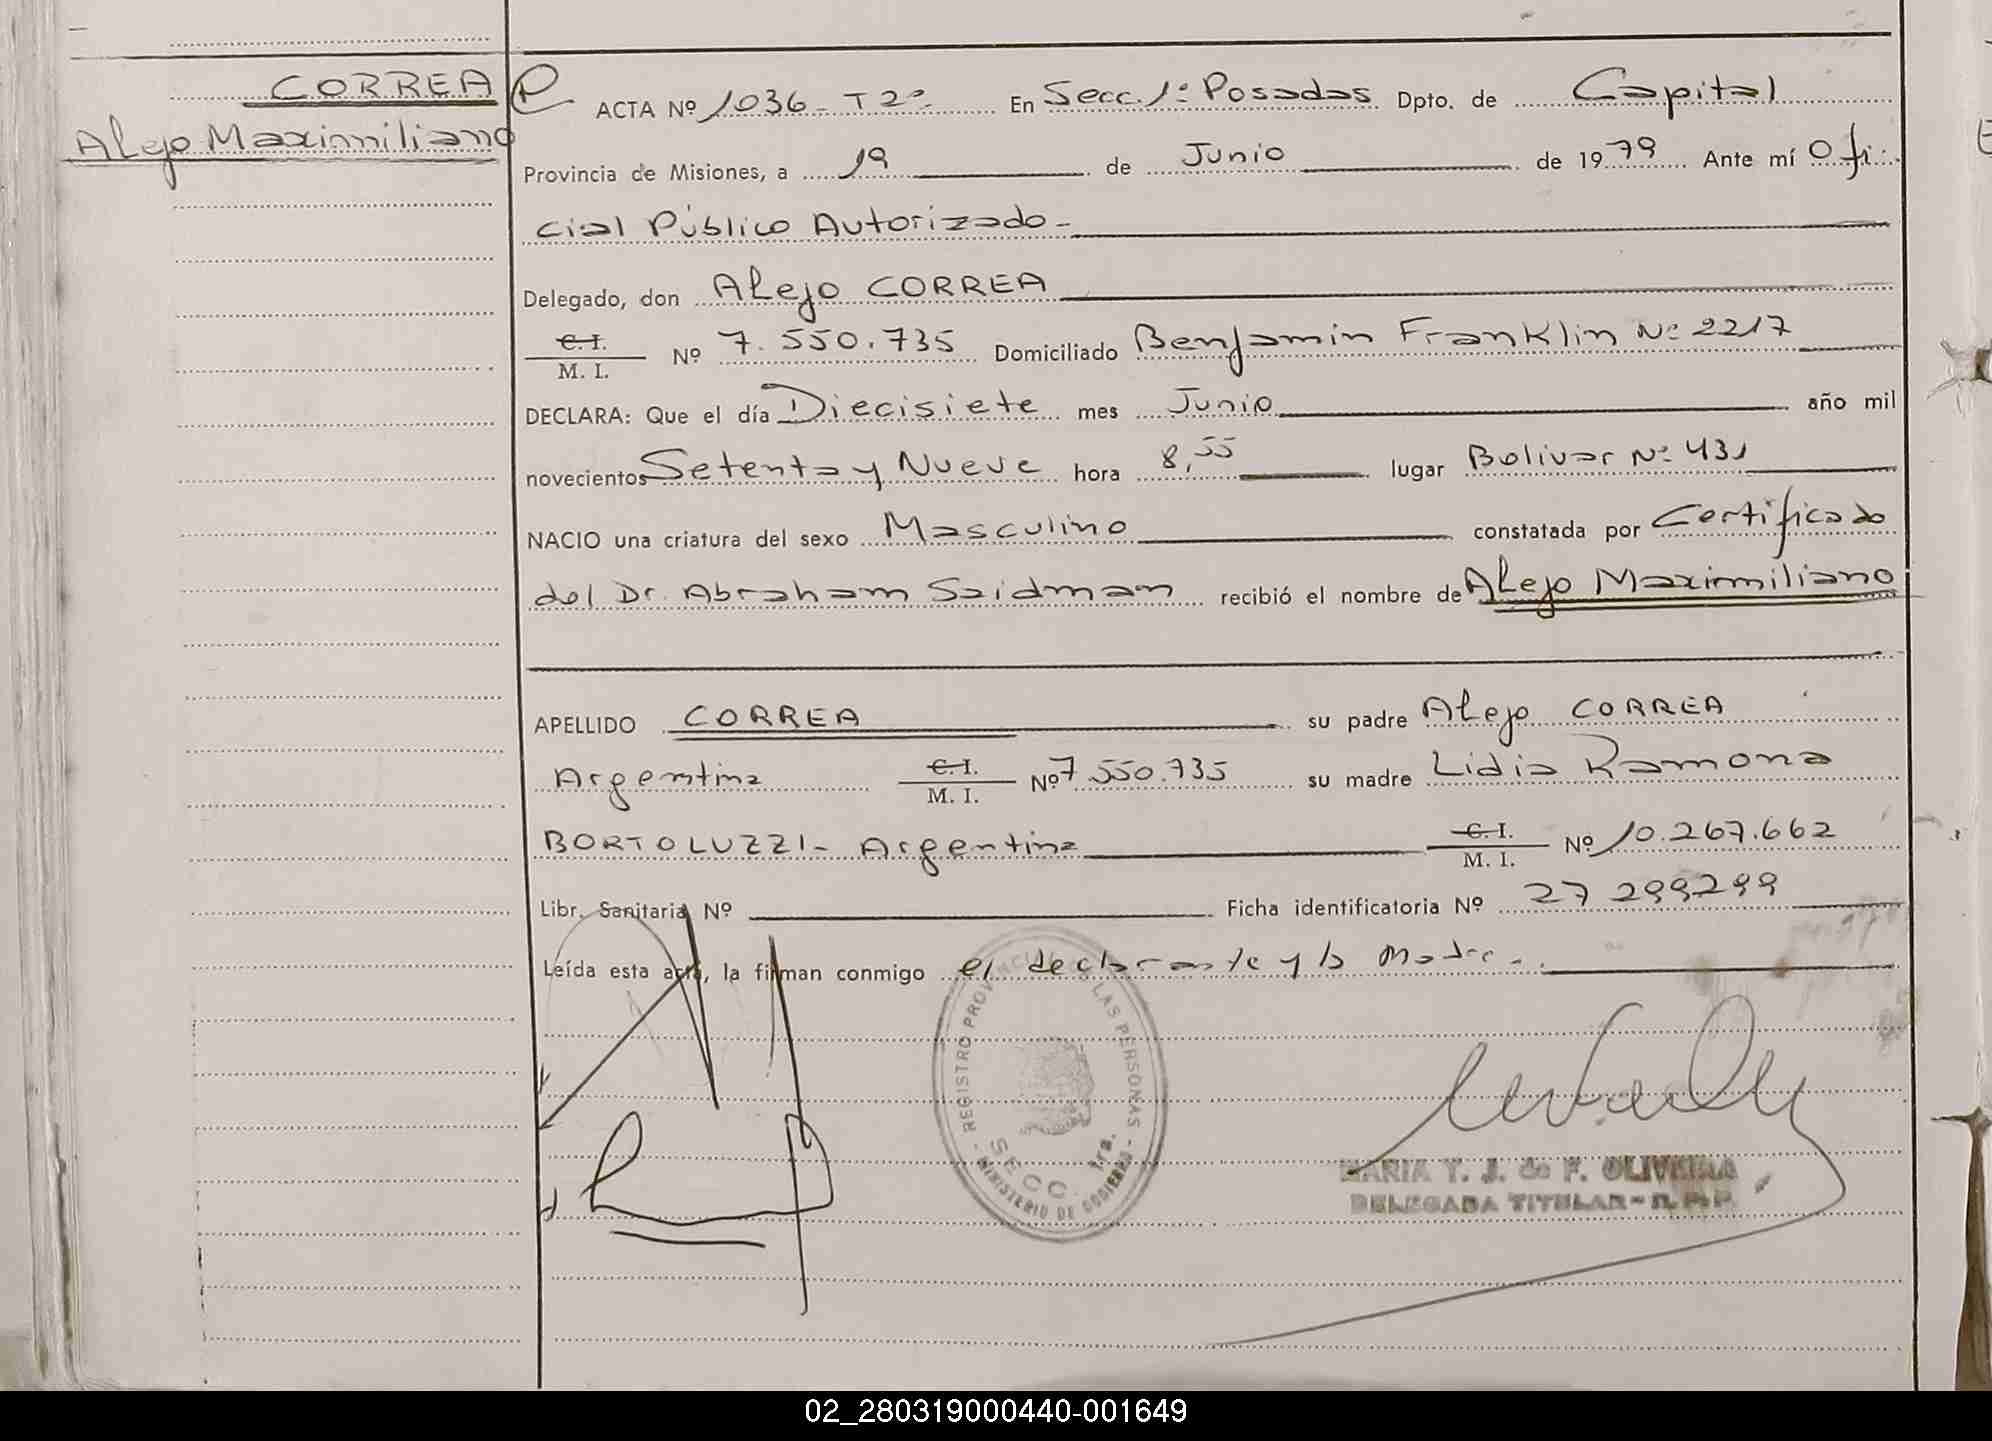 CORREA
Alejo Maximiliano
ACTA Nº 1036 - T 2º En Secc. 1ª Posadas Dpto. de Capital
Provincia de Misiones, a 19 de Junio de 1979 Ante mí Ofi-
cial Público Autorizado-
Delegado, don Alejo CORREA
C.I. / M. I. Nº 7.550.735 Domiciliado Benjamin Franklin Nº 2217
DECLARA: Que el día Diecisiete mes Junio año mil
novecientos Setenta y Nueve hora 8,55 lugar Bolivar Nº 431
NACIO una criatura del sexo Masculino constatada por Certificado
del Dr. Abraham Saidman recibió el nombre de Alejo Maximiliano
APELLIDO CORREA su padre Alejo CORREA
Argentina C.I. / M. I. Nº 7.550.735 su madre Lidia Ramona
BORTOLUZZI- Argentina C.I. / M. I. Nº 10.267.662
Libr. Sanitaria Nº Ficha identificatoria Nº 27 299299
Leída esta acta, la firman conmigo el declarante y la Madre.-
- REGISTRO PROVINCIAL DE LAS PERSONAS -
SECC. 1ra.
MINISTERIO DE GOBIERNO
MARIA Y. J. de F. OLIVEIRA
DELEGADA TITULAR - R. P. P.
02_280319000440-001649